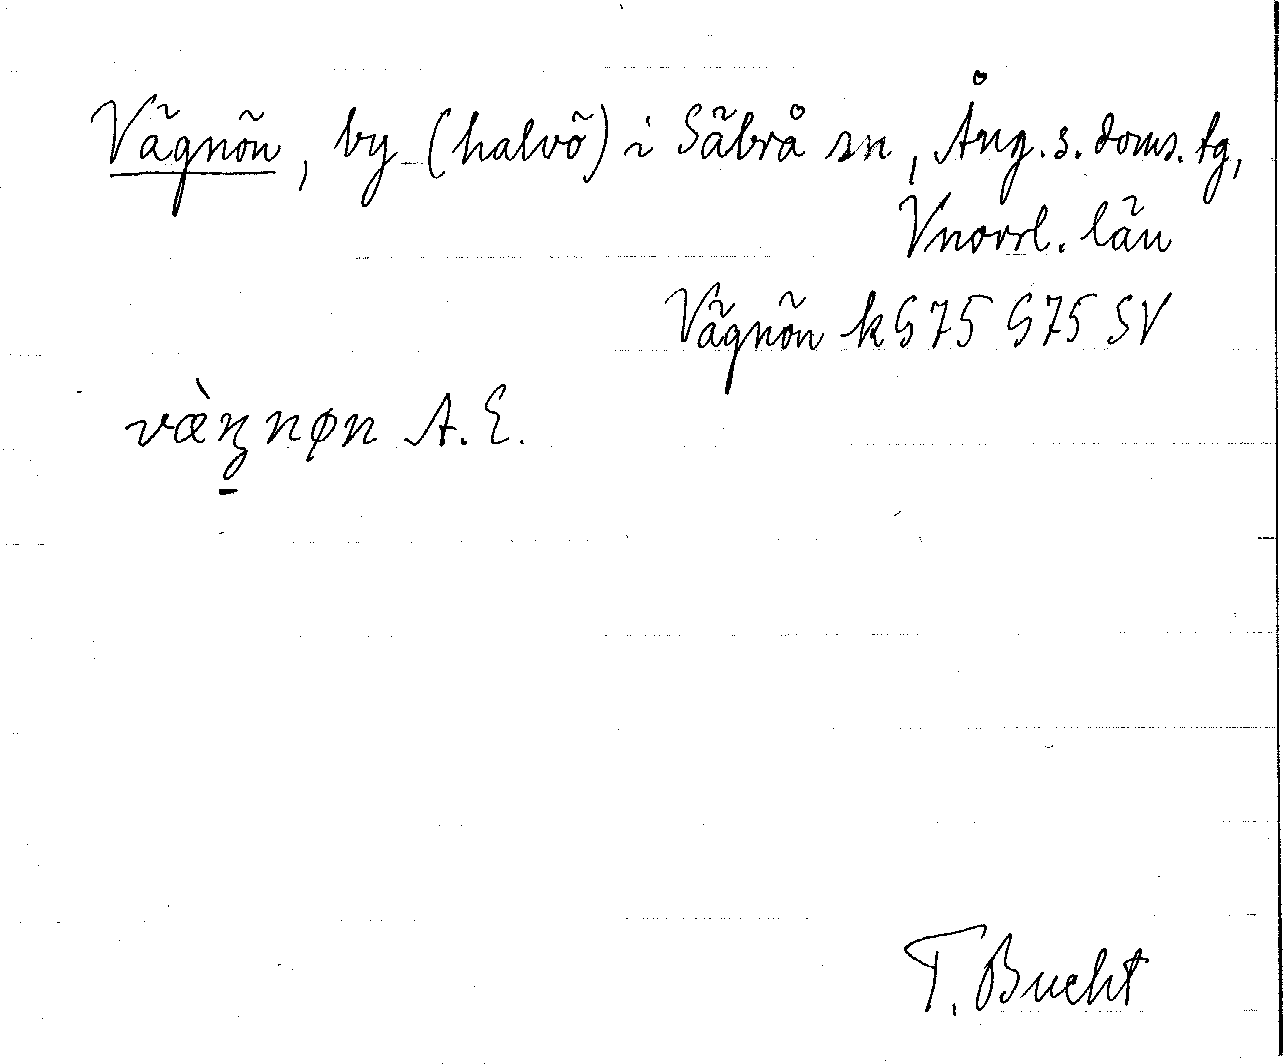 Vägnön, by (halvö) i Säbrå sn, Ång. s. doms. tg,
Vnorrl. län
Vägnön k G75 G75 SV
væ̀ŋnøn A. E.
T. Bucht